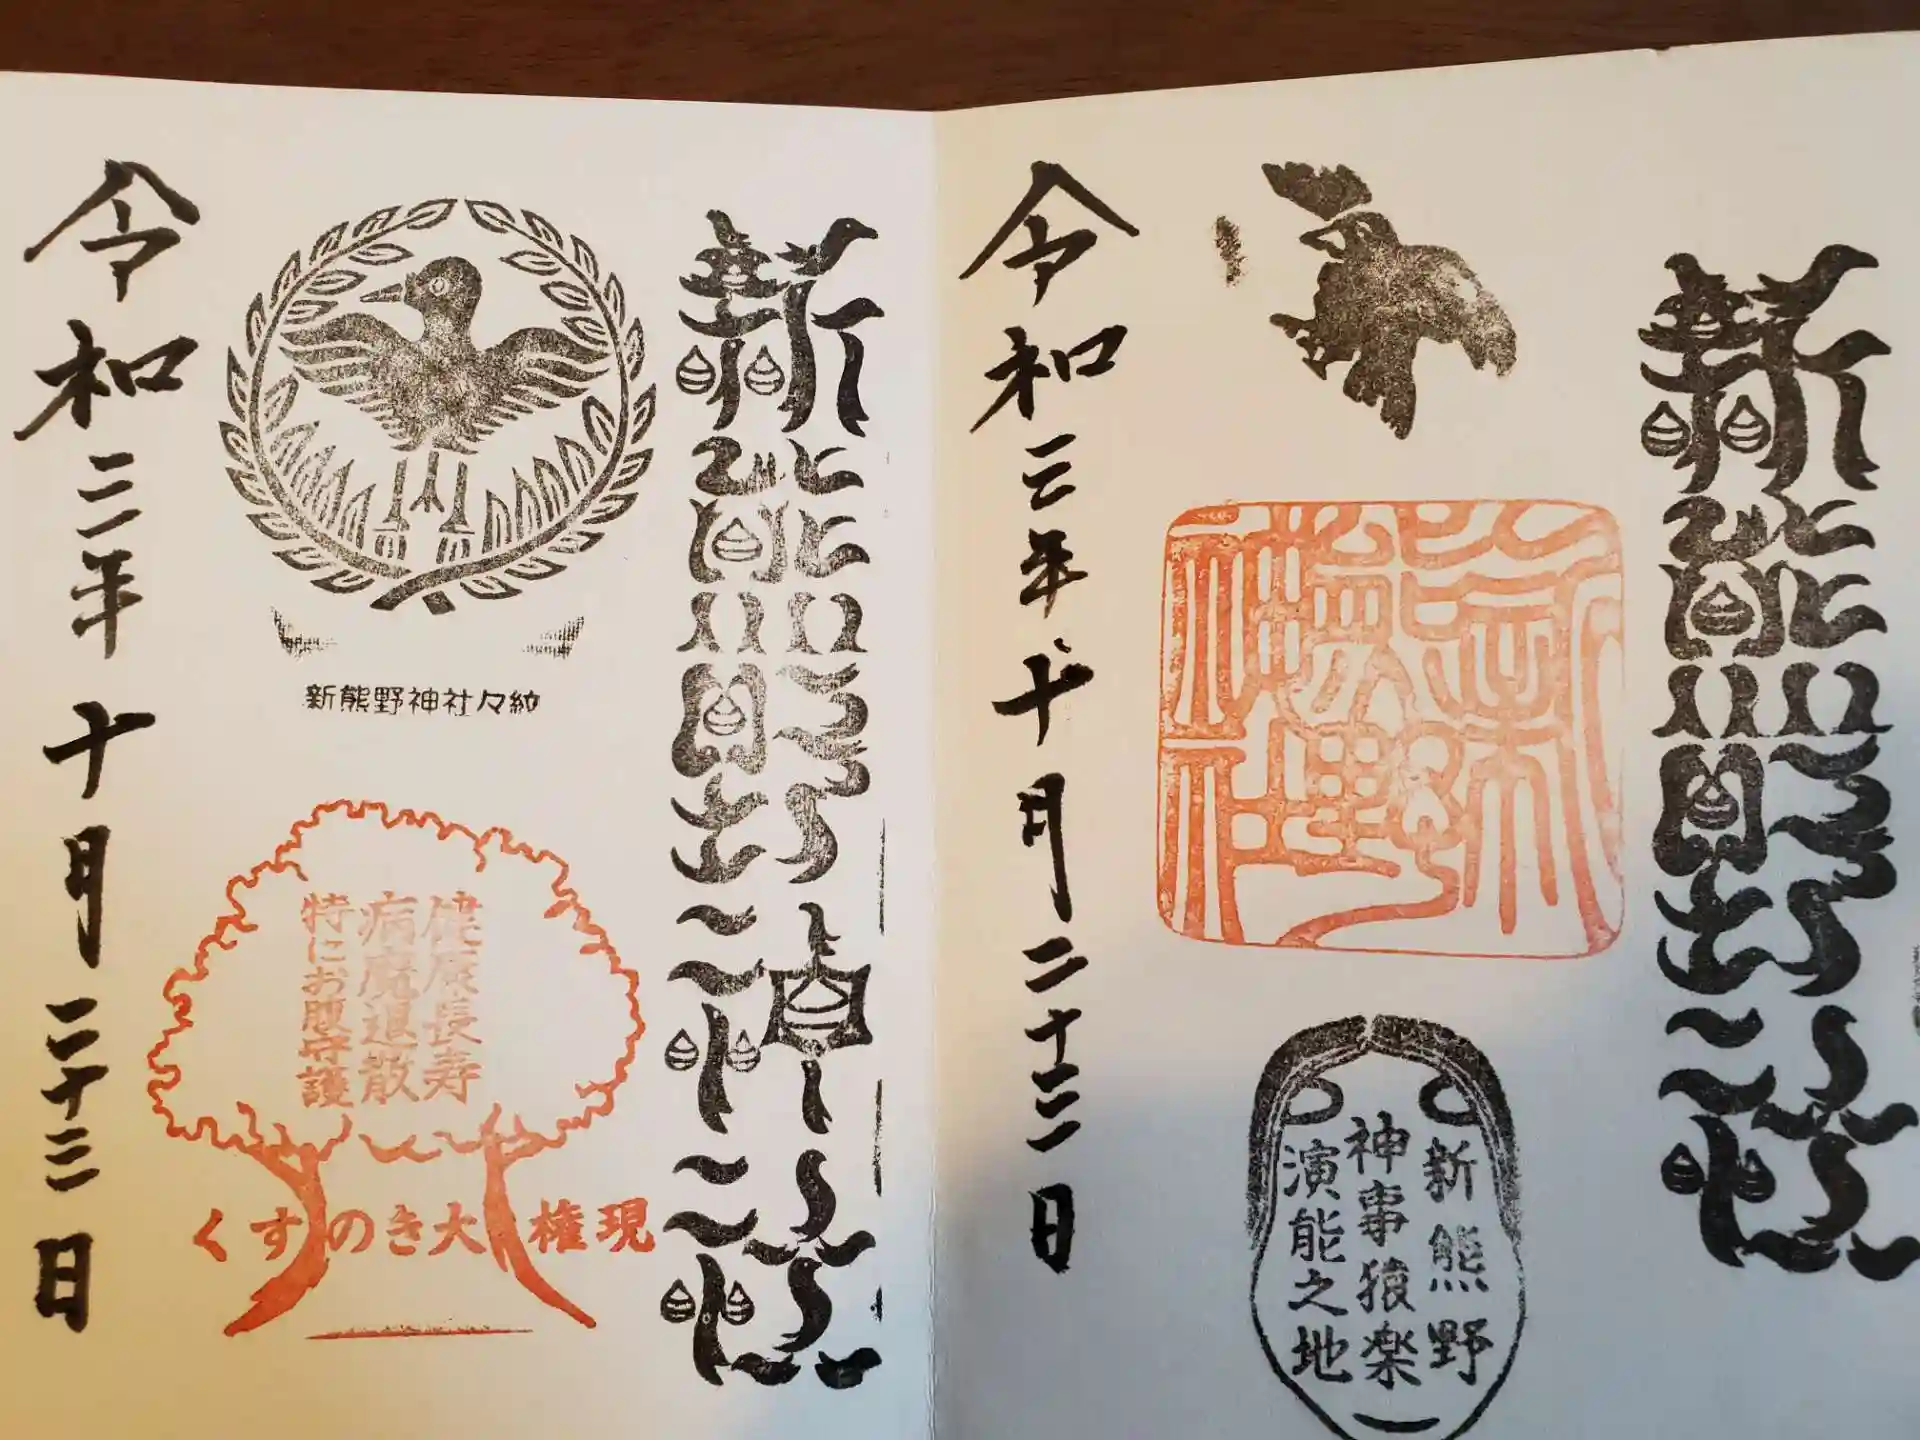 新熊野社
新熊野
神事猿楽
演能之地
令和三年十月二十三日
新熊野神社
新熊野神社々紋
健康長寿
病魔退散
特にお腹守護
くすのき大権現
令和三年十月二十三日